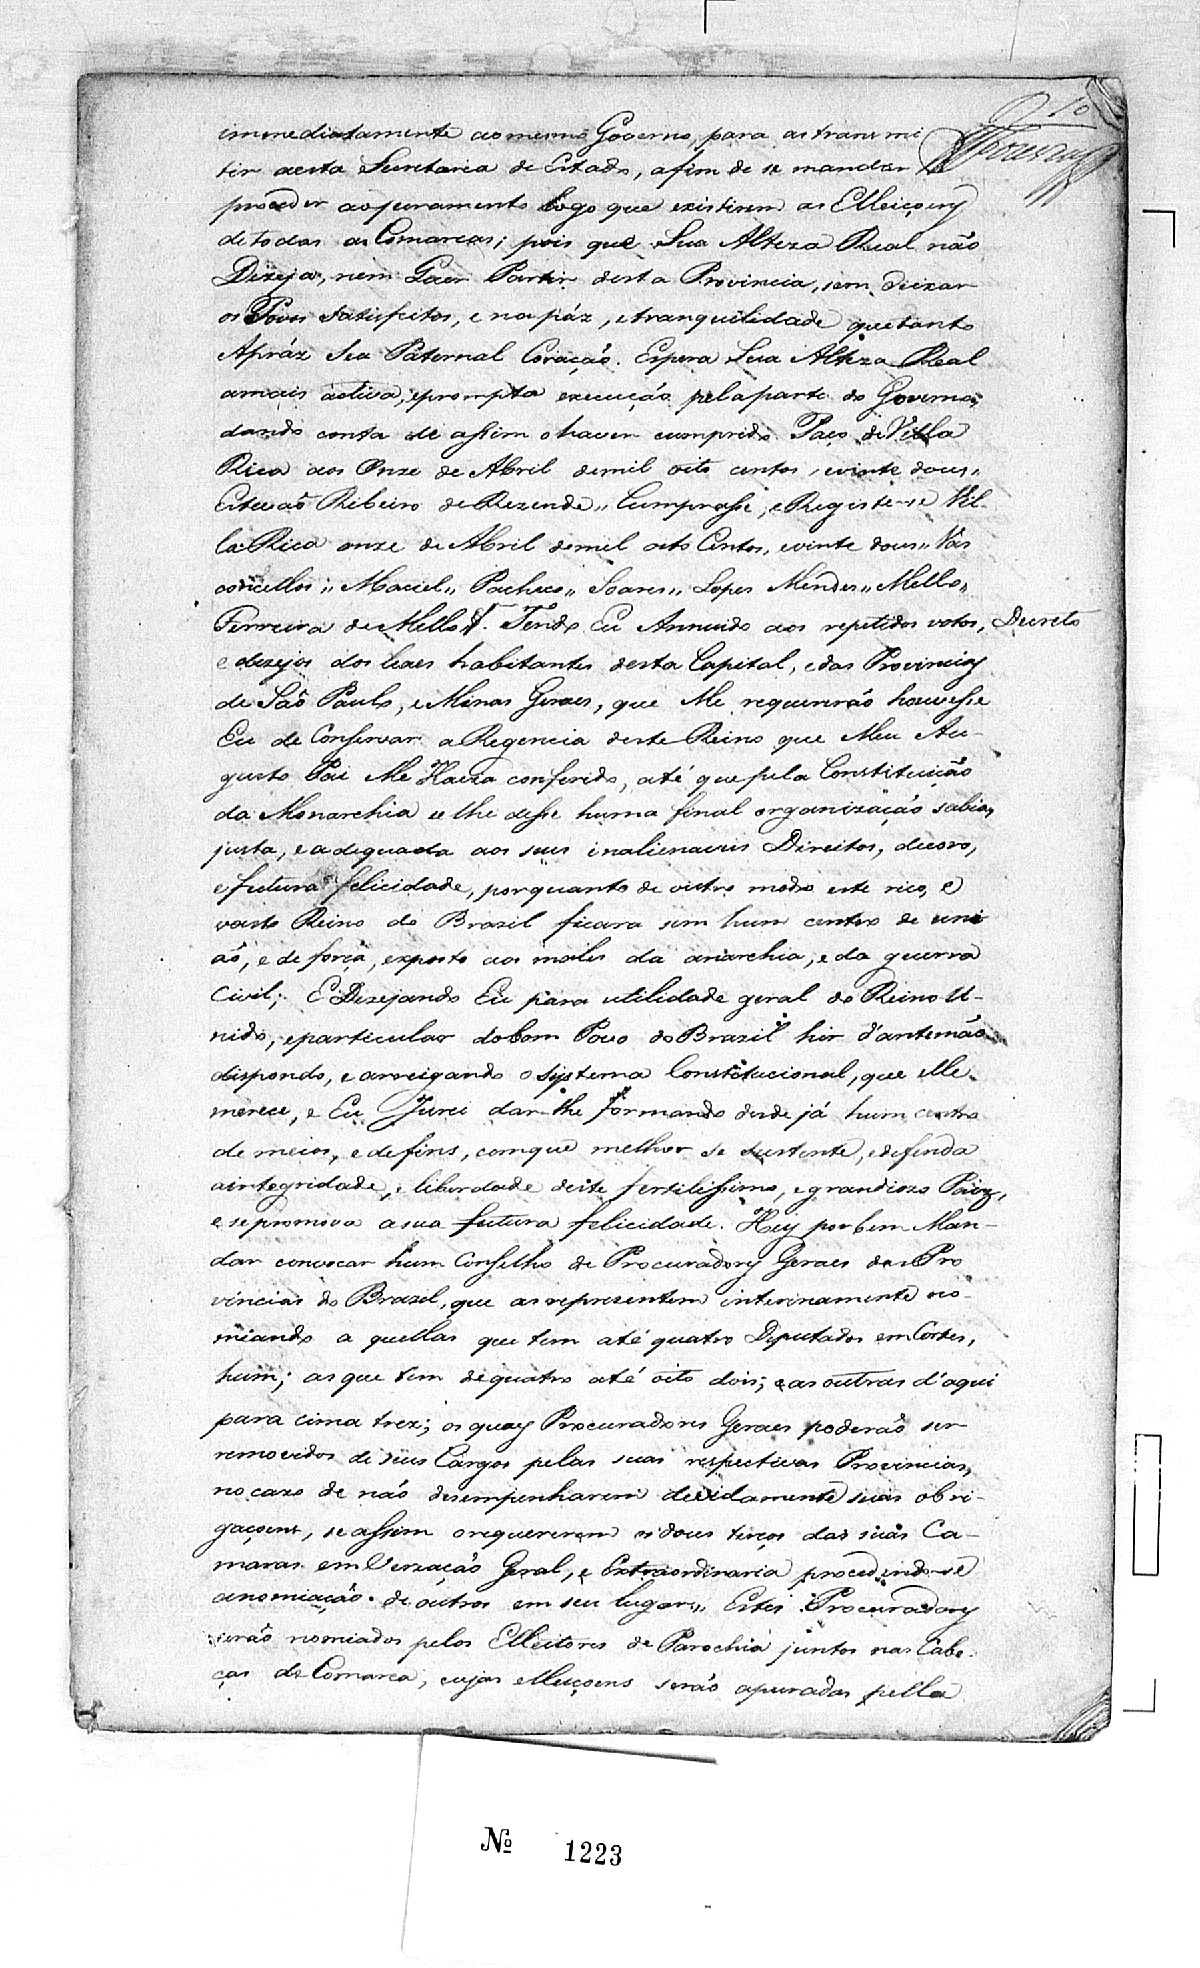 10
immediatamente ao mesmo Governo, para as transmi
tir aesta Secretaria de Estado, afim de se mandar
proceder ao juramento logo que existirem as Elleiçoens
detodas as Comarcas; pois que Sua Alteza Real não
Dezeja, nem Quer Partir desta Provincia, sem deixar
os Povos satisfeitos, e na páz, e tranquilidade que tanto
Apráz Seu Paternal Coração. Espera Sua Alteza Real
amais activa, eprompta execução pelaparte do Governo,
dando conta de assim o haver cumprido. Paço de Villa
Rica aos Onze de Abril demil oito centos, evinte dous„
Estevaõ Ribeiro de Rezende„ Cumprasse, e Registe-se Vil-
la Rica onze de Abril demil oito Centos, evinte dous„ Vas
concellos„ Maciel„ Pacheco„ Soares„ Lopes Mendes„ Mello„
Ferreira de Mello. Tendo Eu Annuido aos repetidos votos,
Decreto
e dezejos dos leaes habitantes desta Capital, edas Provincias
de Saõ Paulo, e Minas Geraes, que Me requererão houvesse
Eu de Conservar a Regencia deste Reino que Meu Au-
gusto Pai Me Havia conferido, até que pela Constituição
da Monarchia se lhe desse huma final organização sabia,
justa, e adequada aos seus inalienaveis Direitos, decoro,
e futura felicidade, porquanto de outro modo este rico, e
vasto Reino do Brazil ficara sem hum centro de uni
aõ, e de força, exposto aos males da anarchia, e da guerra
Civil; E Dezejando Eu para utilidade geral do Reino U-
nido, eparticular dobom Povo do Brazil hir d'antemão
dispondo, e arreigando o systema Constitucional, que elle
merece, e Eu Jurei dar-lhe formando desde já hum centro
de meios, e defins, comque melhor se sustente, edefenda
aintegridade, e liberdade deste fertilissimo, e grandiozo Paiz,
e sepromova asua futura felicidade. Hey por bem Man-
dar convocar hum Conselho de Procuradores Geraes das Pro
vincias do Brazil, que as reprezentem interinamente no-
miando a quellas que tem até quatro Deputados em Cortes,
hum; as que tem dequatro até oito dois; e as outras d'aqui
para cima trez; os quaes Procuradores Geraes poderaõ ser
removidos de seus Cargos pelas suas respectivas Provincias,
no cazo de não desempenharem devidamente suas obri-
gaçoens, se assim o requererem os dous terços das suas Ca-
maras em Vereação Geral, e Extraordinaria procedendo-se
anomiação de outros em seu lugar„ Estes Procuradores
serão nomiados pelos Elleitores de Parochia juntos nas Cabe-
ças de Comarca, cujas elleiçoens serão apuradas pella
Nº 1223